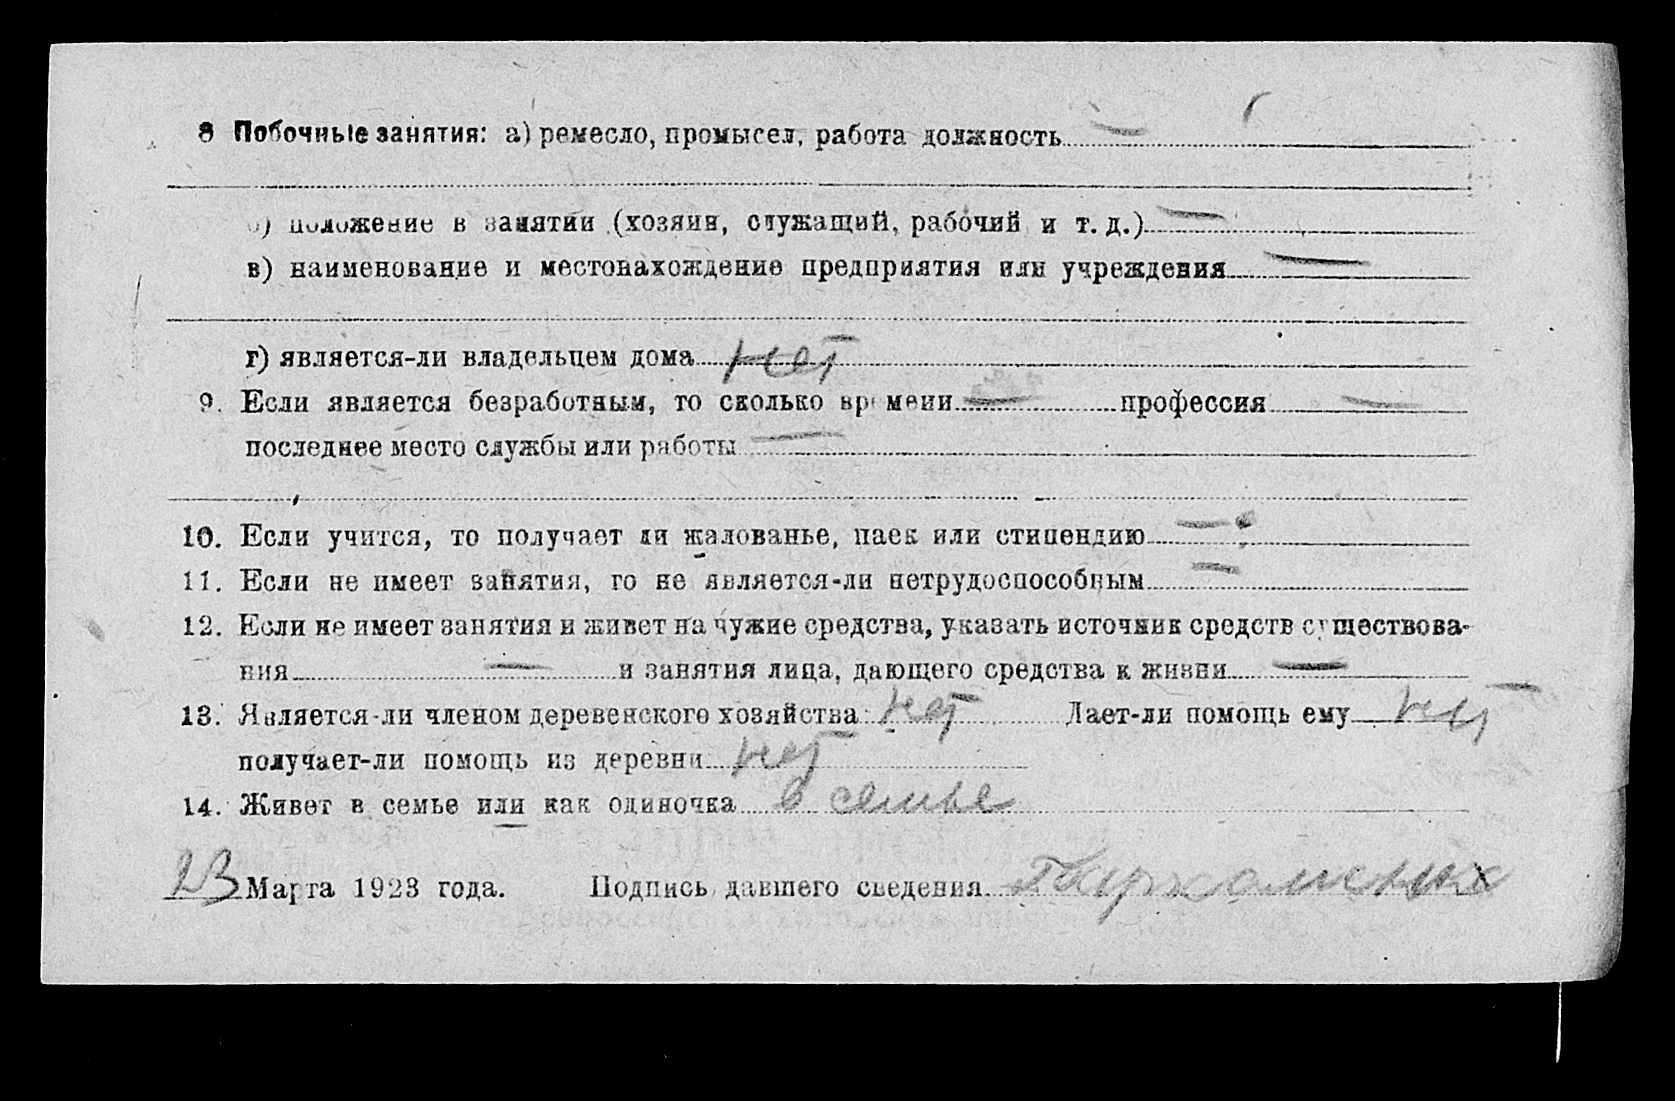 8 Побочные занятия: а) ремесло, промысел, работа должность —
б) положение в занятии (хозяин, служащий, рабочий и т. д.) —
в) наименование и местонахождение предприятия или учреждения —
г) является-ли владельцем дома нет
9. Если является безработным, то сколько времени — профессия —
последнее место службы или работы —
10. Если учится, то получает ли жалованье, паек или стипендию —
11. Если не имеет занятия, то не является-ли нетрудоспособным —
12. Если не имеет занятия и живет на чужие средства, указать источник средств существова-
ния — и занятия лица, дающего средства к жизни —
13. Является-ли членом деревенского хозяйства: нет Дает-ли помощь ему нет
получает-ли помощь из деревни нет
14. Живет в семье или как одиночка в семье
23 Марта 1923 года. Подпись давшего сведения